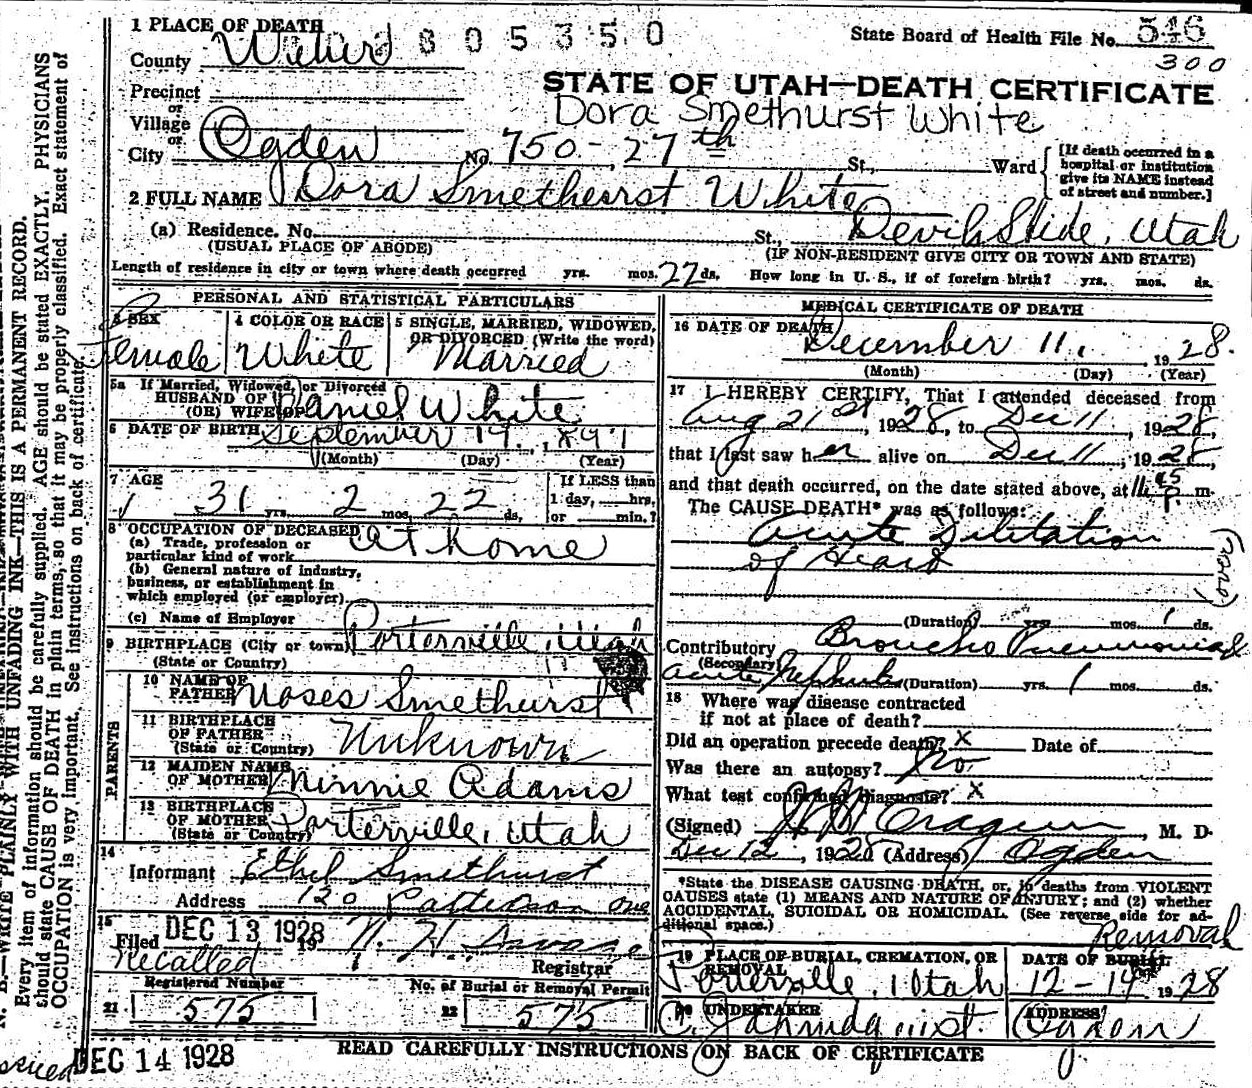 1 PLACE OF DEATH 805350 State Board of Health File No. 546
County Weber 300
STATE OF UTAH—DEATH CERTIFICATE
Precinct
or
Village
or
Dora Smethurst White
City Ogden No. 750 - 27th St., Ward
[If death occurred in a hospital or institution give its NAME instead of street and number.]
2 FULL NAME Dora Smethurst White
(a) Residence. No. St., Devils Slide, Utah
(USUAL PLACE OF ABODE) (IF NON-RESIDENT GIVE CITY OR TOWN AND STATE)
Length of residence in city or town where death occurred yrs. mos. 22 ds. How long in U. S., if of foreign birth? yrs. mos. ds.
PERSONAL AND STATISTICAL PARTICULARS
3 SEX 4 COLOR OR RACE 5 SINGLE, MARRIED, WIDOWED, OR DIVORCED (Write the word)
Female White Married
5a If Married, Widowed, or Divorced
HUSBAND OF
(OR) WIFE OF Daniel White
6 DATE OF BIRTH September 19, 1891
(Month) (Day) (Year)
7 AGE 31 yrs. 2 mos. 22 ds.
If LESS than
1 day, hrs.
or min.?
8 OCCUPATION OF DECEASED
(a) Trade, profession or
particular kind of work at home
(b) General nature of industry,
business, or establishment in
which employed (or employer)
(c) Name of Employer
9 BIRTHPLACE (City or town) Porterville, Utah
(State or Country)
PARENTS
10 NAME OF
FATHER Moses Smethurst
11 BIRTHPLACE
OF FATHER Unknown
(State or Country)
12 MAIDEN NAME
OF MOTHER Minnie Adams
13 BIRTHPLACE
OF MOTHER Porterville, Utah
(State or Country)
14
Informant Ethel Smethurst
Address 120 Patterson ave
15
Filed DEC 13 1928 19
Recalled Registrar
Registered Number No. of Burial or Removal Permit
21 575 22 575
MEDICAL CERTIFICATE OF DEATH
16 DATE OF DEATH
December 11, 1928.
(Month) (Day) (Year)
17 I HEREBY CERTIFY, That I attended deceased from
Aug 21st, 1928, to Dec 11, 1928,
that I last saw her alive on Dec 11, 1928,
and that death occurred, on the date stated above, at P. m.
The CAUSE DEATH* was as follows:
Acute Dilitation
of Heart
(over)
(Duration) yrs. mos. 1 ds.
Contributory Broncho Pneumonia &
(Secondary) acute Nephritis (Duration) yrs. 1 mos. ds.
18 Where was disease contracted
if not at place of death?
Did an operation precede death? X Date of
Was there an autopsy? No
What test confirmed diagnosis? X
(Signed) , M. D.
Dec 12, 1928 (Address) Ogden
*State the DISEASE CAUSING DEATH, or, in deaths from VIOLENT
CAUSES state (1) MEANS AND NATURE OF INJURY; and (2) whether
ACCIDENTAL, SUICIDAL OR HOMICIDAL. (See reverse side for ad-
ditional space.)
Removal
19 PLACE OF BURIAL, CREMATION, OR REMOVAL DATE OF BURIAL
Porterville, Utah 12-14 1928
20 UNDERTAKER ADDRESS
Ogden
READ CAREFULLY INSTRUCTIONS ON BACK OF CERTIFICATE
Issued DEC 14 1928
N. B.—WRITE PLAINLY WITH UNFADING INK—THIS IS A PERMANENT RECORD.
Every item of information should be carefully supplied. AGE should be stated EXACTLY. PHYSICIANS
should state CAUSE OF DEATH in plain terms, so that it may be properly classified. Exact statement of
OCCUPATION is very important. See instructions on back of certificate.